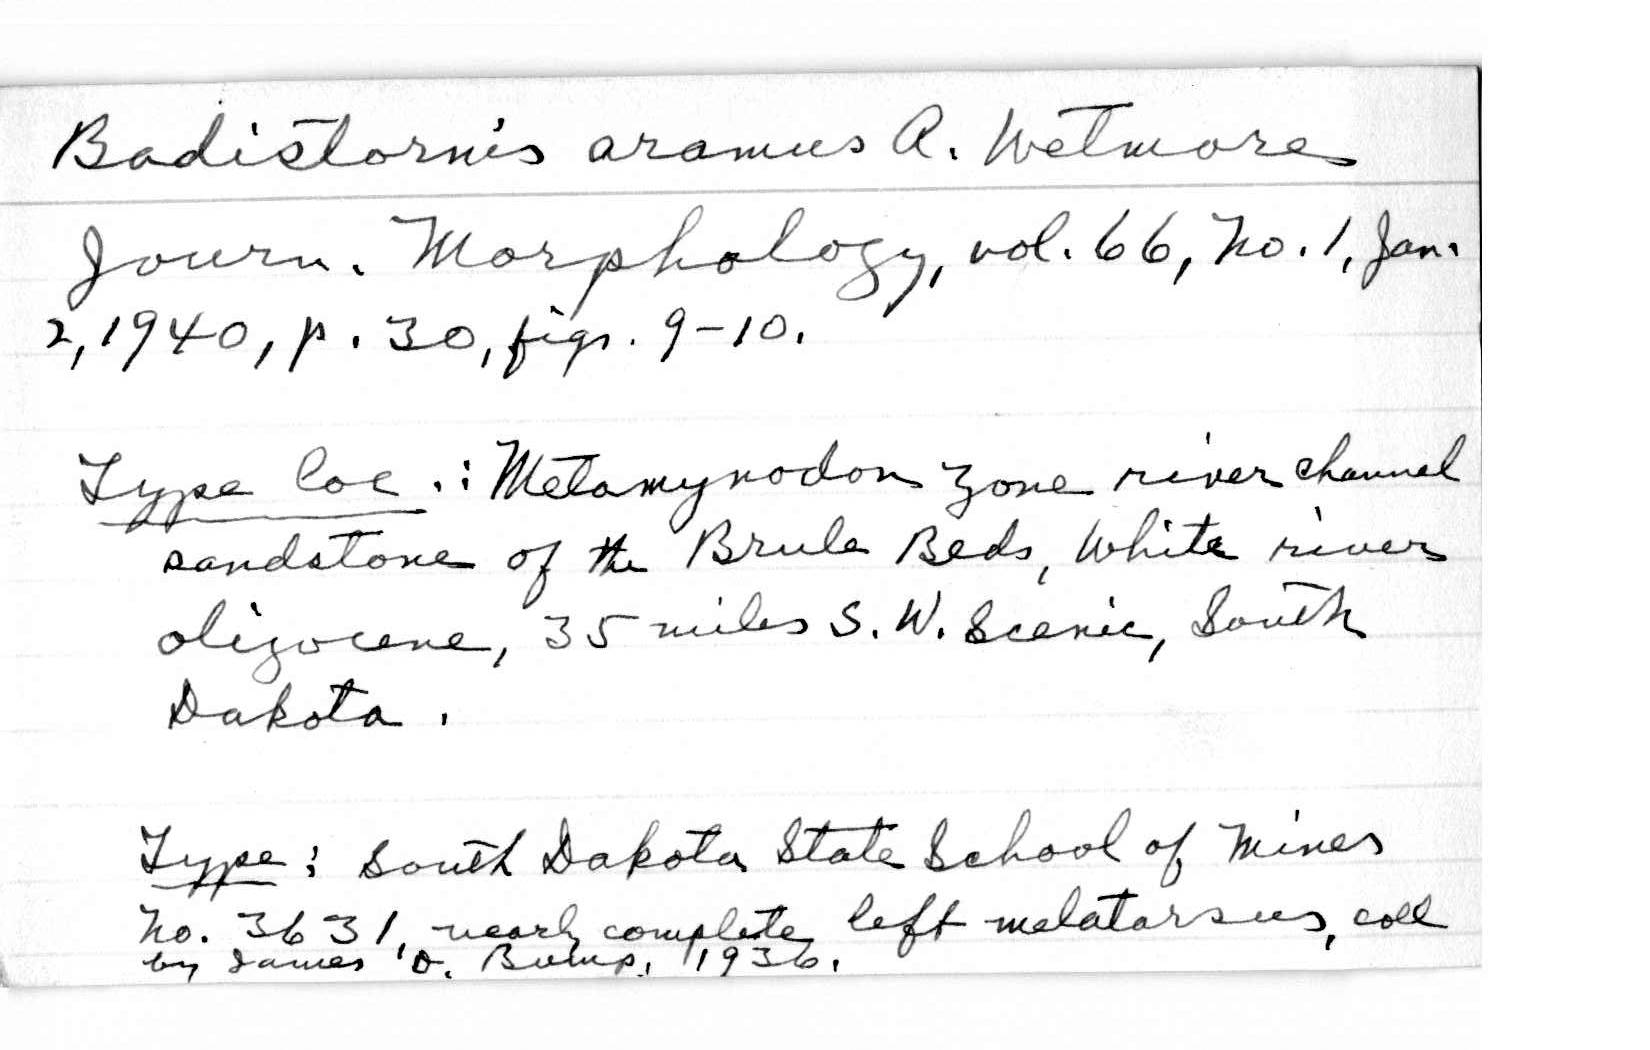 Badistornis aramus A. Wetmore
Journ. Morphology, vol. 66, No. 1, Jan.
2, 1940, p. 30, figs. 9-10.
Type loc.: Metamynodon zone river channel
sandstone of the Brule Beds, White river
oligocene, 35 miles S. W. Scenic, South
Dakota.
Type: South Dakota State School of Mines
No. 3631, nearly complete left metatarsus, coll
by James D. Bump, 1936.